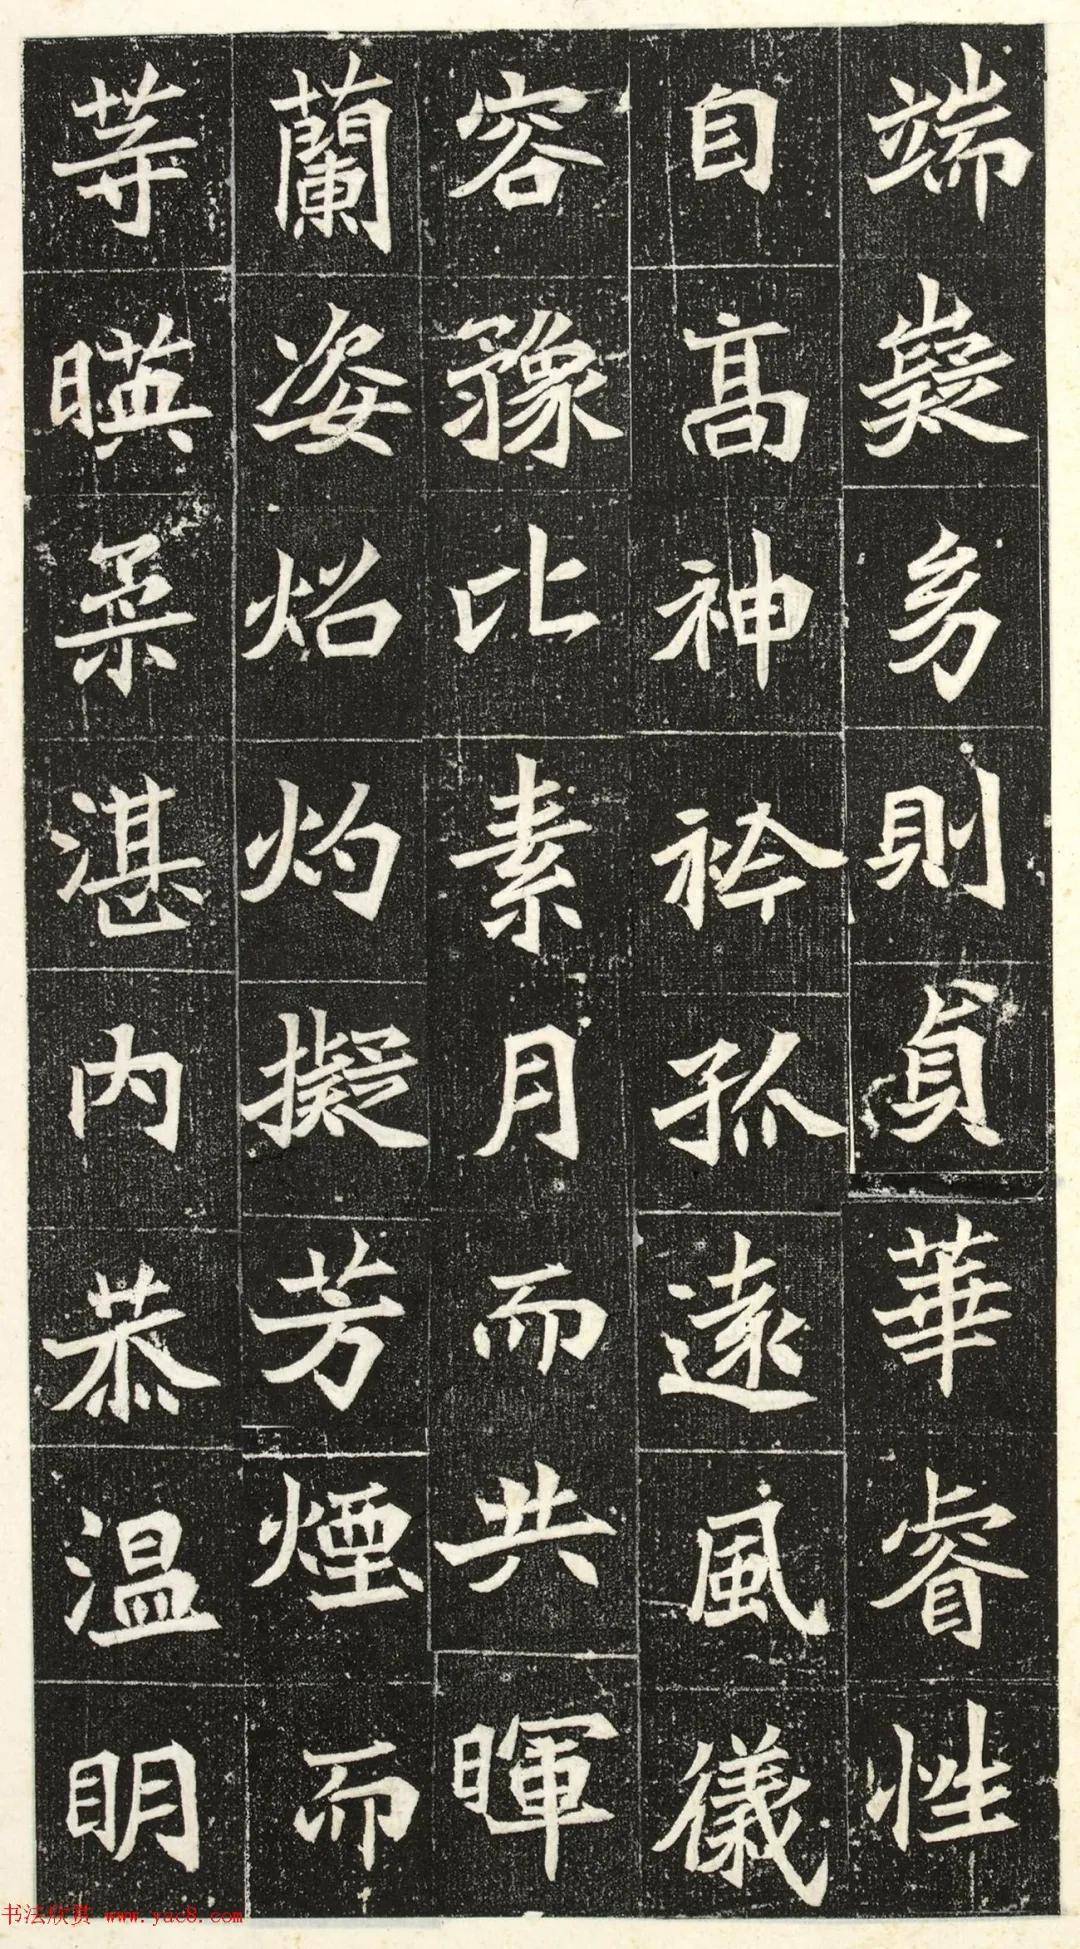 端嶷多則貞華睿性
自高神衿孤遠風儀
容豫比素月而共暉
蘭姿炤灼擬芳煙而
等暎柔湛內恭溫明
书法欣赏 www.yac8.com